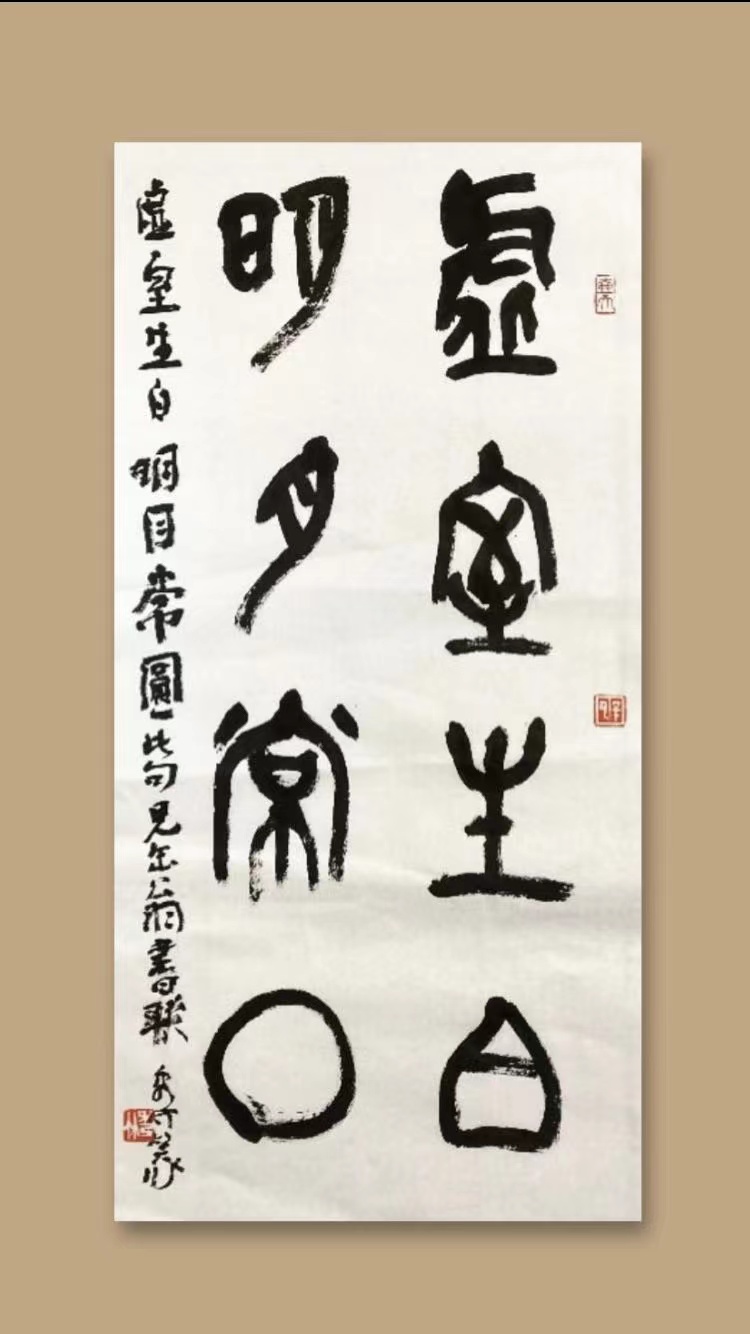 虛室生白
明月常〇
虛室生白明月常圓此句見缶翁書聯